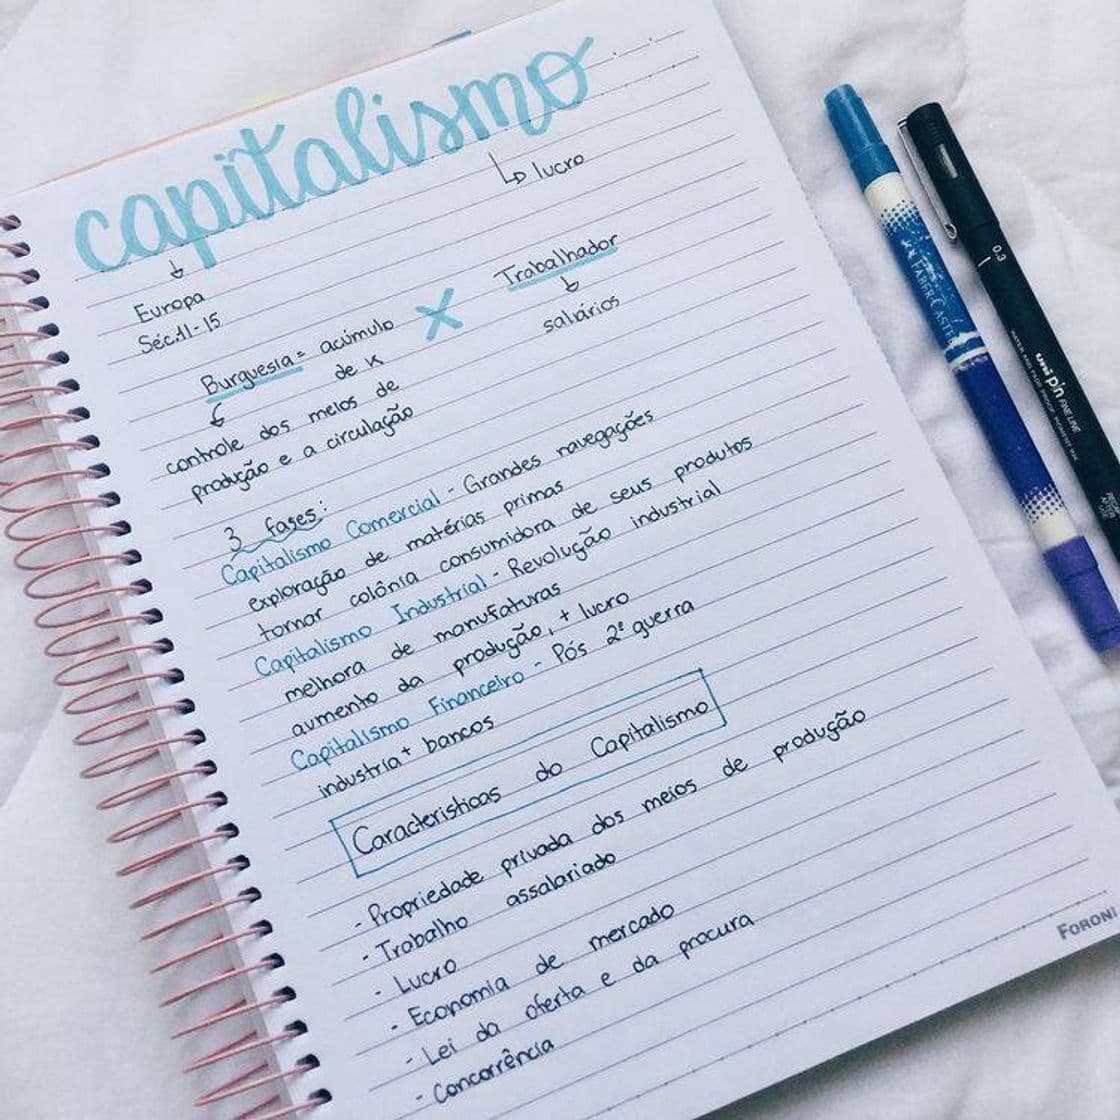 capitalismo
↳ lucro
↓
Europa
Séc: 11-15
Burguesia = acúmulo
de K
X
Trabalhador
↓
salários
controle dos meios de
produção e a circulação
3 fases:
Capitalismo Comercial - Grandes navegações
exploração de matérias primas
tornar colônia consumidora de seus produtos
Capitalismo Industrial - Revolução industrial
melhora de manufaturas
aumento da produção, + lucro
Capitalismo Financeiro - Pós 2ª guerra
industria + bancos
Características do Capitalismo
- Propriedade privada dos meios de produção
- Trabalho assalariado
- Lucro
- Economia de mercado
- Lei da oferta e da procura
- Concorrência
FORONI
FABER-CASTELL
0.3
uni pin FINE LINE
WATER AND FADE PROOF PIGMENT INK